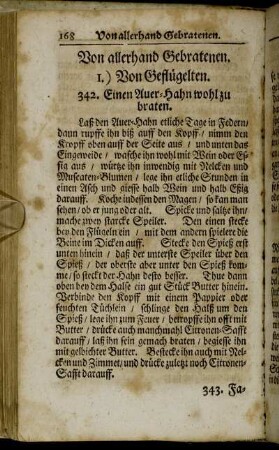 168 Von allerhand Gebratenen.
Von allerhand Gebratenen.
1.) Von Geflügelten.
342. Einen Auer-Hahn wohl zu
braten.
Laß den Auer-Hahn etliche Tage in Federn/
dann rupffe ihn biß auff den Kopff / nimm den
Kropff oben auff der Seite aus / und unten das
Eingeweide / wasche ihn wohl mit Wein oder Es-
sig aus / würtze ihn inwendig mit Nelcken und
Muscaten-Blumen / lege ihn etliche Stunden in
einen Asch und giesse halb Wein und halb Eßig
darauff. Koche indessen den Magen / so kan man
sehen / ob er jung oder alt. Spicke und saltze ihn/
mache zwey starcke Speiler. Den einen stecke
bey den Flügeln ein / mit dem andern spielere die
Beine im Dicken auff. Stecke den Spieß erst
unten hinein / daß der unterste Speiler über den
Spieß / der oberste aber unter den Spieß kom-
me / so steckt der Hahn desto besser. Thue dann
oben bey dem Halse ein gut Stück Butter hinein.
Verbinde den Kopff mit einem Pappier oder
feuchten Tüchlein / schlinge den Halß um den
Spieß / lege ihn zum Feuer / betropffe ihn offt mit
Butter / drücke auch manchmahl Citronen-Safft
darauff / laß ihn sein gemach braten / begiesse ihn
mit gelbichter Butter. Bestecke ihn auch mit Nel-
cken und Zimmet / und drücke zuletzt noch Citronen-
Safft darauff.
343. Fa-